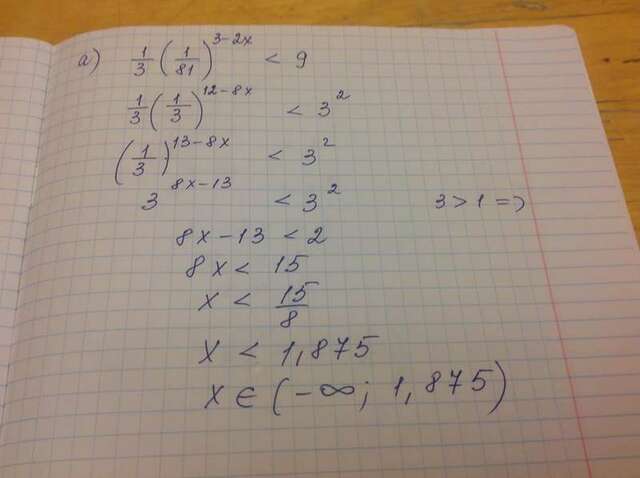 а) 1/3 (1/81)^(3-2x) < 9
1/3 (1/3)^(12-8x) < 3^2
(1/3)^(13-8x) < 3^2
3^(8x-13) < 3^2 3 > 1 =>
8x-13 < 2
8x < 15
x < 15/8
x < 1,875
x ∈ (-∞; 1,875)